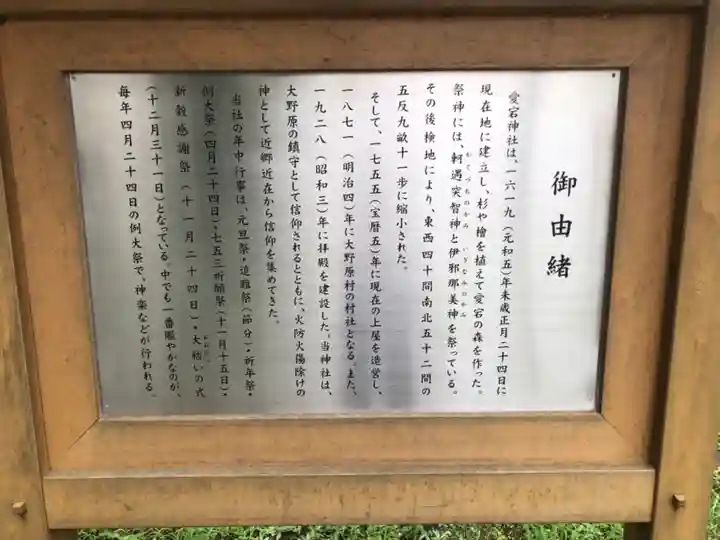 御由緒
愛宕神社は、一六一九(元和五)年未歳正月二十四日に
現在地に建立し、杉や檜を植えて愛宕の森を作った。
祭神には、軻遇突智神と伊邪那美神を祭っている。
かぐつちのかみ いざなみのかみ
その後検地により、東西四十間南北五十二間の
五反九畝十一歩に縮小された。
そして、一七五五(宝暦五)年に現在の上屋を造営し、
一八七一(明治四)年に大野原村の村社となる。また、
一九二八(昭和三)年に拝殿を建設した。当神社は、
大野原の鎮守として信仰されるとともに、火防火陽除けの
神として近郷近在から信仰を集めてきた。
当社の年中行事は、元旦祭・追難祭(節分)・祈年祭・
例大祭(四月二十四日)・七五三祈願祭(十一月十五日)・
新穀感謝祭(十一月二十四日)・大祓いの式
(十二月三十一日)となっている。中でも一番賑やかなのが、
毎年四月二十四日の例大祭で、神楽などが行われる。